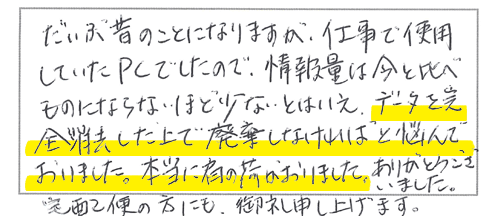 だいぶ昔のことになりますが、仕事で使用
していたPCでしたので、情報量は今と比べ
ものにならないほど少ないとはいえ、データを完
全消去した上で廃棄しなければと悩んで
おりました。本当に肩の荷がおりました。ありがとうござ
いました。
宅配便の方にも、御礼申し上げます。